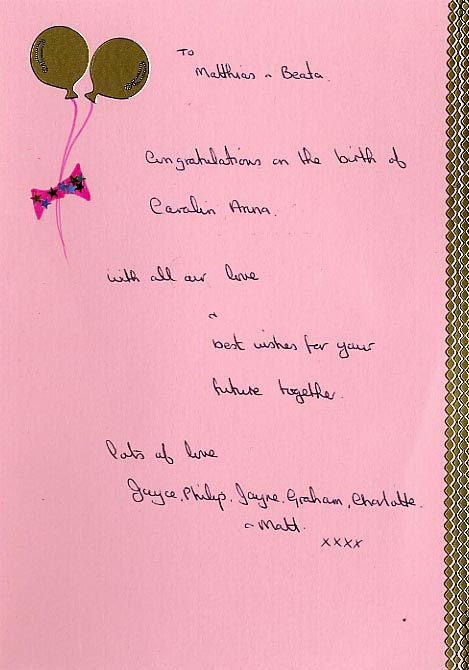 To
Matthias & Beata.
Congratulations on the birth of
Caralin Anna.
with all our love
&
best wishes for your
future together.
Lots of love
Joyce, Philip, Jayne, Graham, Charlotte.
& Matt.
xxxx